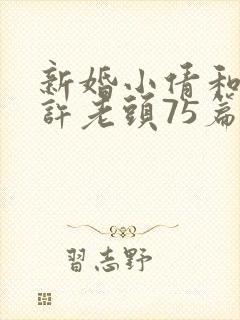 新婚小倩和
許老頭75篇
習志野